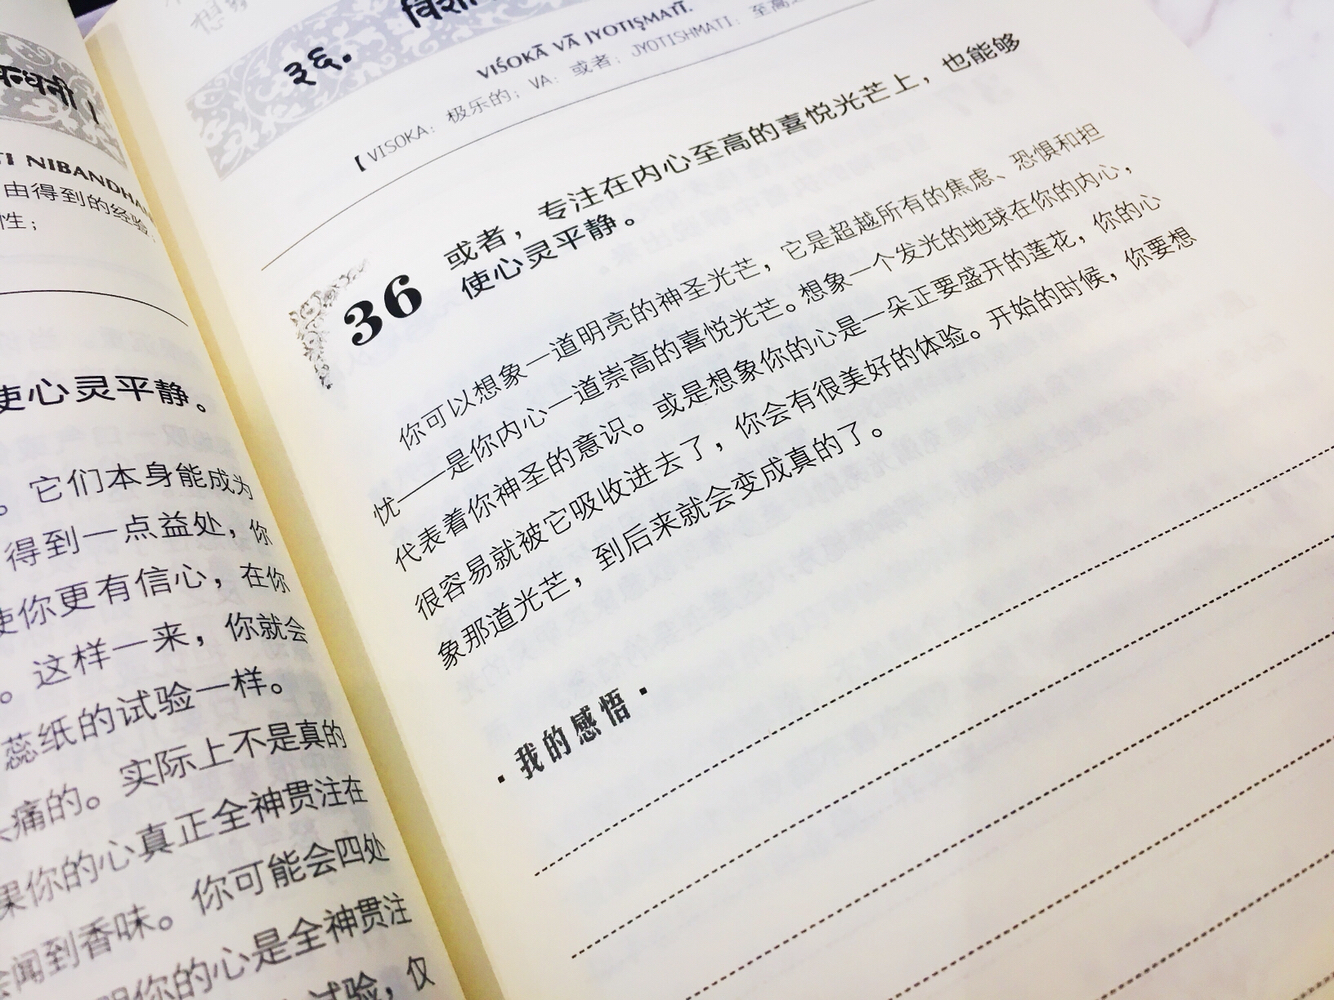 न्धनी ।
TI NIBANDHA
由得到的经验；
性；
使心灵平静。
。它们本身能成为
得到一点益处，你
使你更有信心，在你
。这样一来，你就会
蕊纸的试验一样。
头痛的。实际上不是真的
果你的心真正全神贯注在
会闻到香味。你可能会四处
明你的心是全神贯注
试验，仅
想象
३६.
VIŚOKĀ VĀ JYOTIṢMATĪ.
【 VISOKA：极乐的；VA：或者；JYOTISHMATI：至高
36
或者，专注在内心至高的喜悦光芒上，也能够
使心灵平静。
你可以想象一道明亮的神圣光芒，它是超越所有的焦虑、恐惧和担
忧——是你内心一道崇高的喜悦光芒。想象一个发光的地球在你的内心，
代表着你神圣的意识。或是想象你的心是一朵正要盛开的莲花，你的心
很容易就被它吸收进去了，你会有很美好的体验。开始的时候，你要想
象那道光芒，到后来就会变成真的了。
· 我的感悟 ·